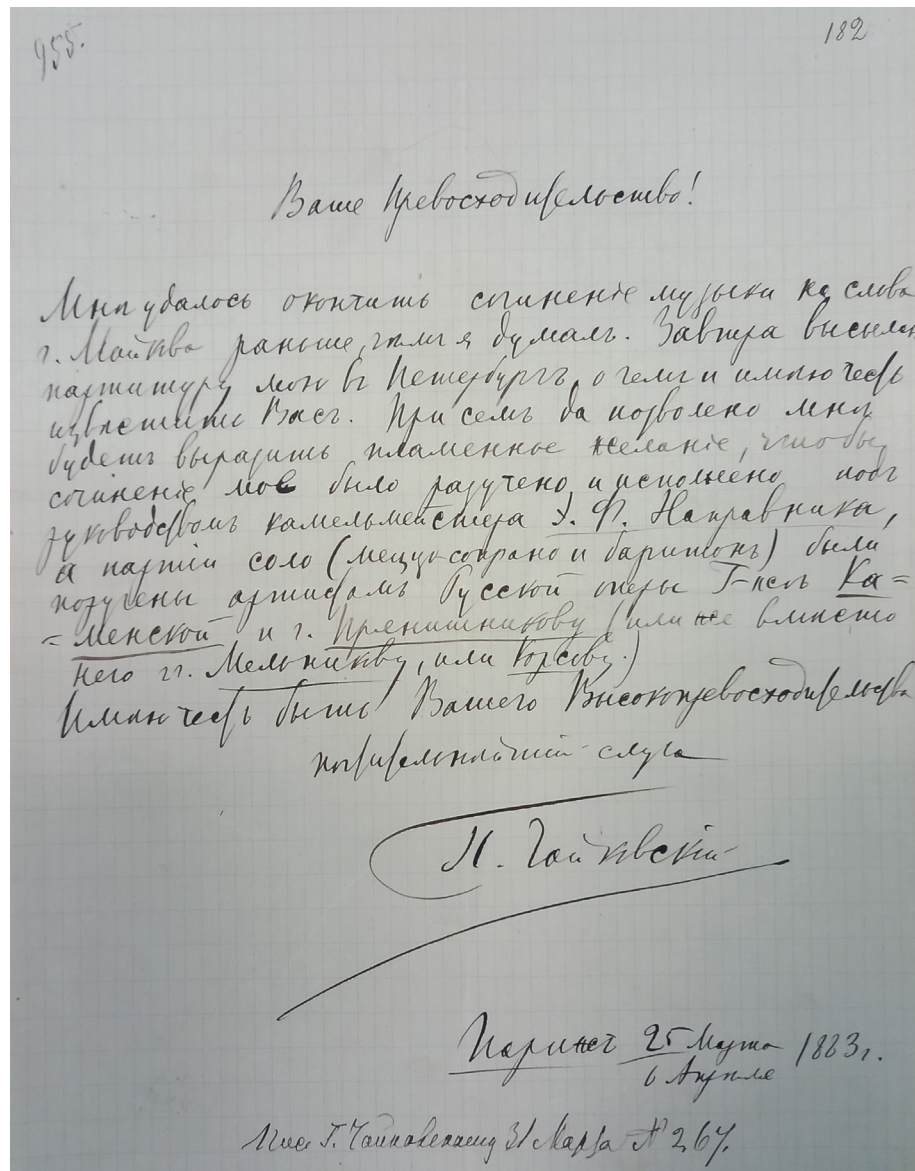 955.
182
Ваше Превосходительство!
Мнѣ удалось окончить сочиненіе музыки на слова
г. Майкова раньше, чѣмъ я думалъ. Завтра высылаю
партитуру мою въ Петербургъ, о чемъ и имѣю честь
извѣстить Васъ. При семъ да позволено мнѣ
будетъ выразить пламенное желаніе, чтобы
сочиненіе мое было разучено и исполнено подъ
руководствомъ капельмейстера Э. Ф. Направника,
а партіи соло (меццо-сопрано и баритонъ) были
поручены артистамъ Русской оперы Г-жѣ Ка=
=менской и г. Прянишникову (или же вмѣсто
него гг. Мельникову, или Корсову.)
Имѣю честь быть Вашего Высокопревосходительства
почтительнѣйшій слуга
П. Чайковскій
Парижъ 25 Марта 1883 г.
6 Апрѣля
Г. Чайковскому 31 Марта № 267.